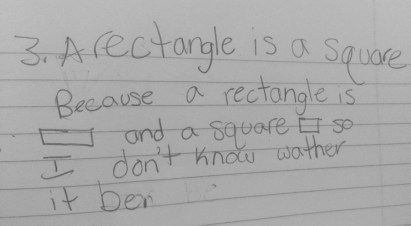 3. A rectangle is a square
Because a rectangle is
and a square so
I don't know wather
it ben